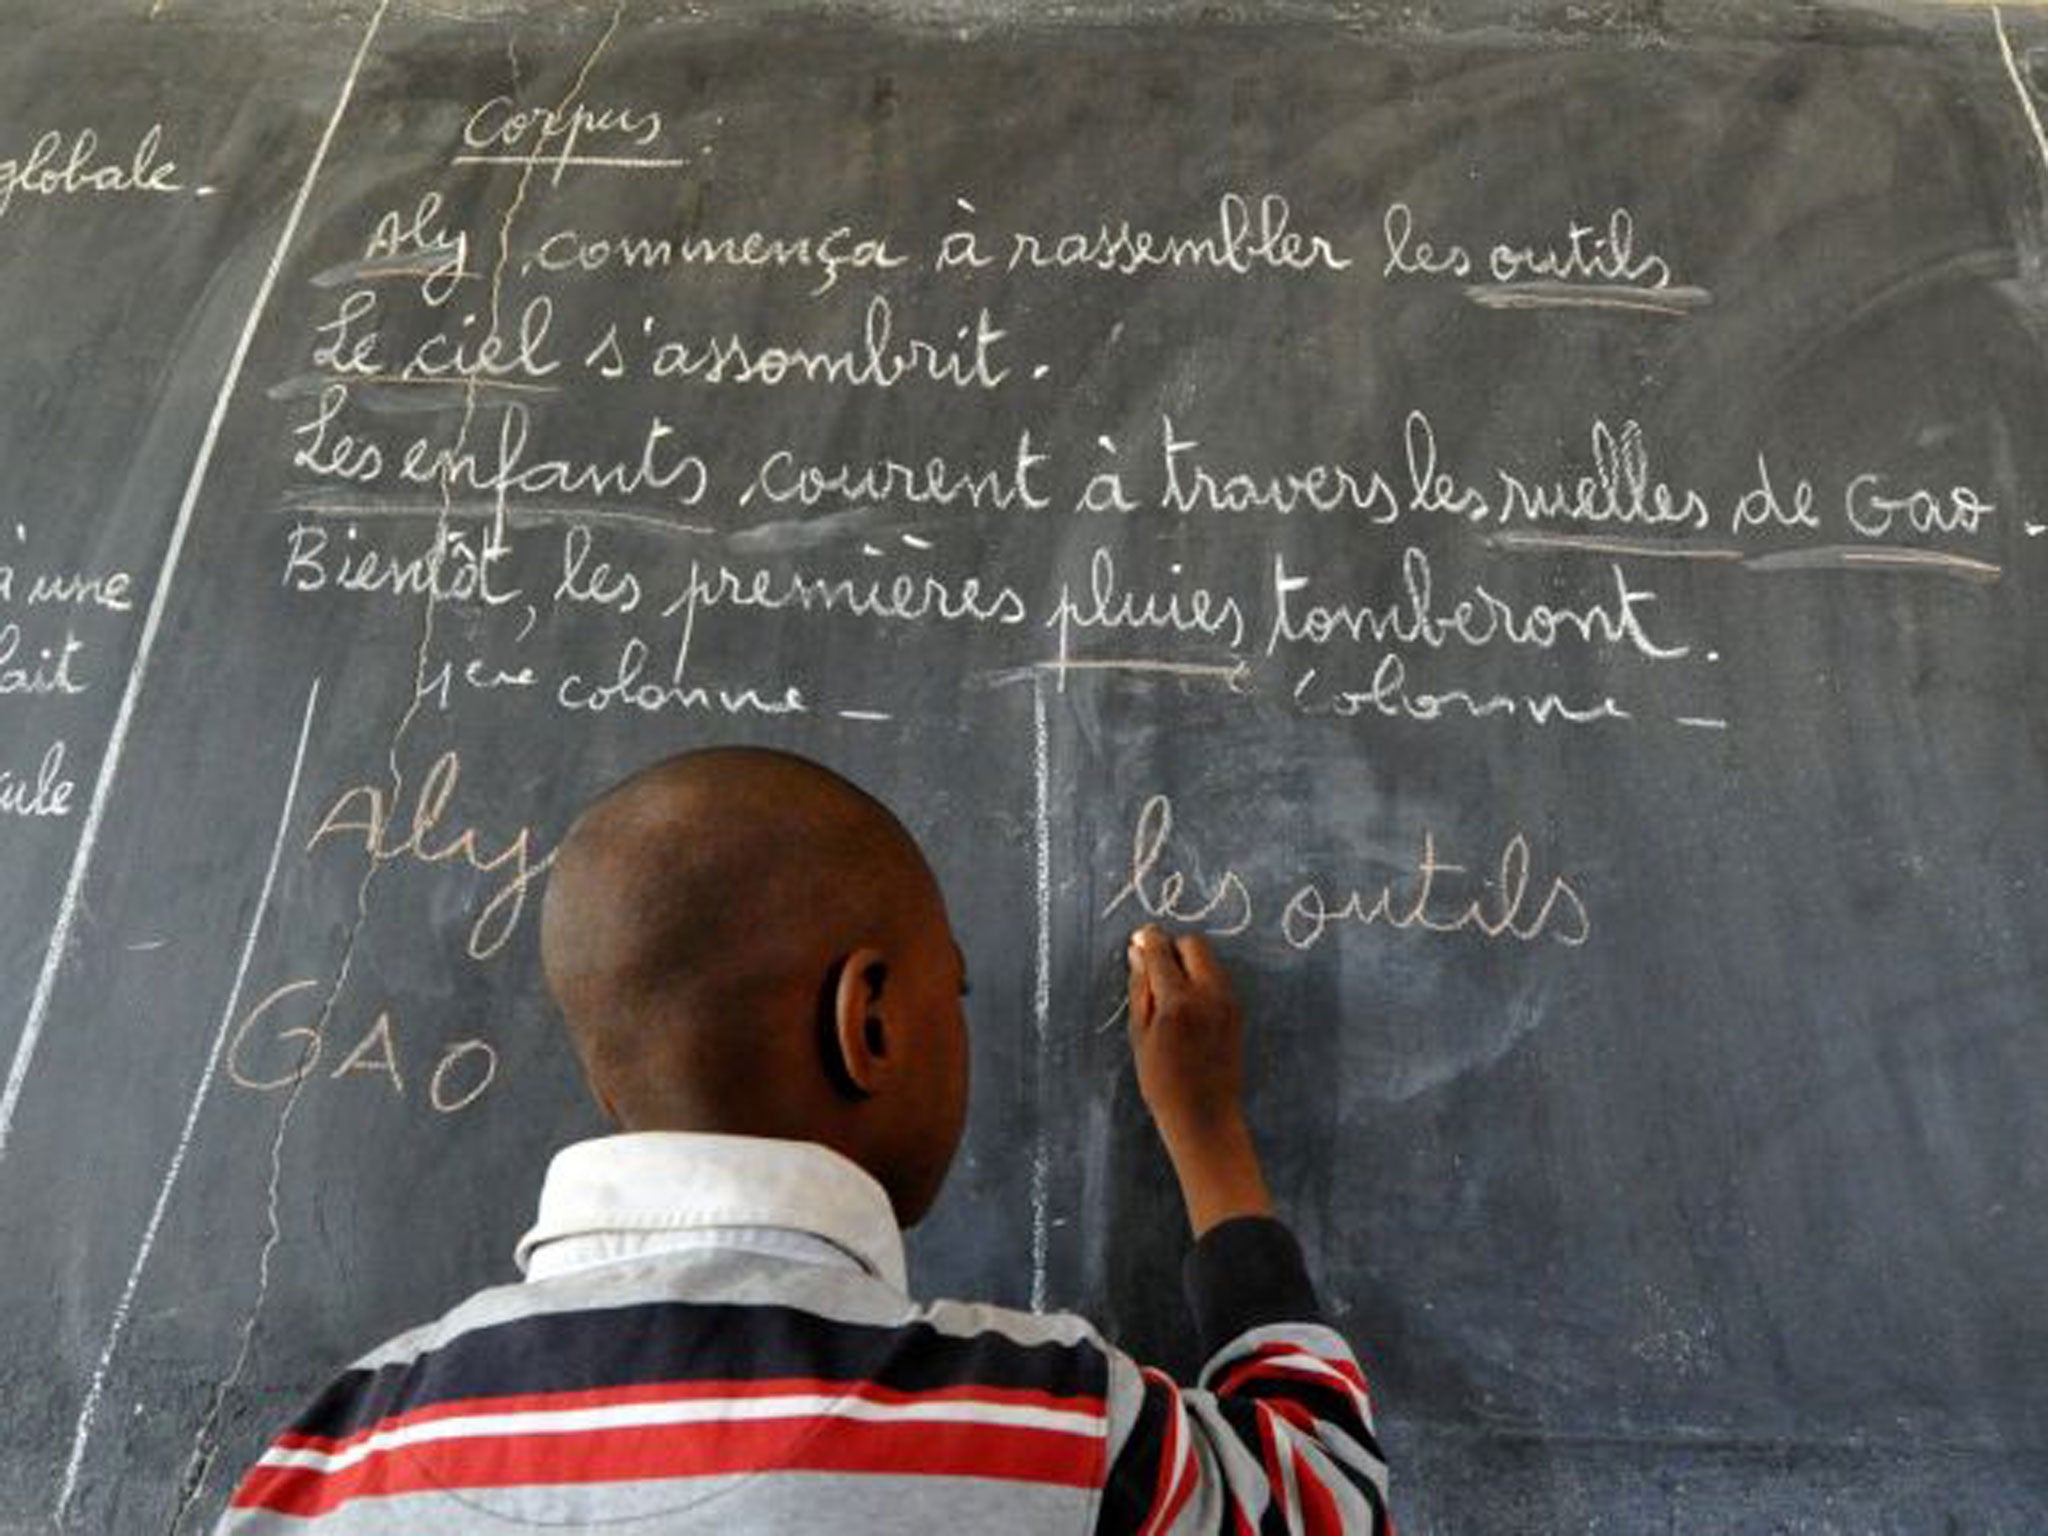 globale.
à une
fait
cule
Corpus :
Aly commença à rassembler les outils
Le ciel s'assombrit.
Les enfants courent à travers les ruelles de Gao.
Bientôt, les premières pluies tomberont.
1ère colonne
colonne
Aly
GAO
les outils